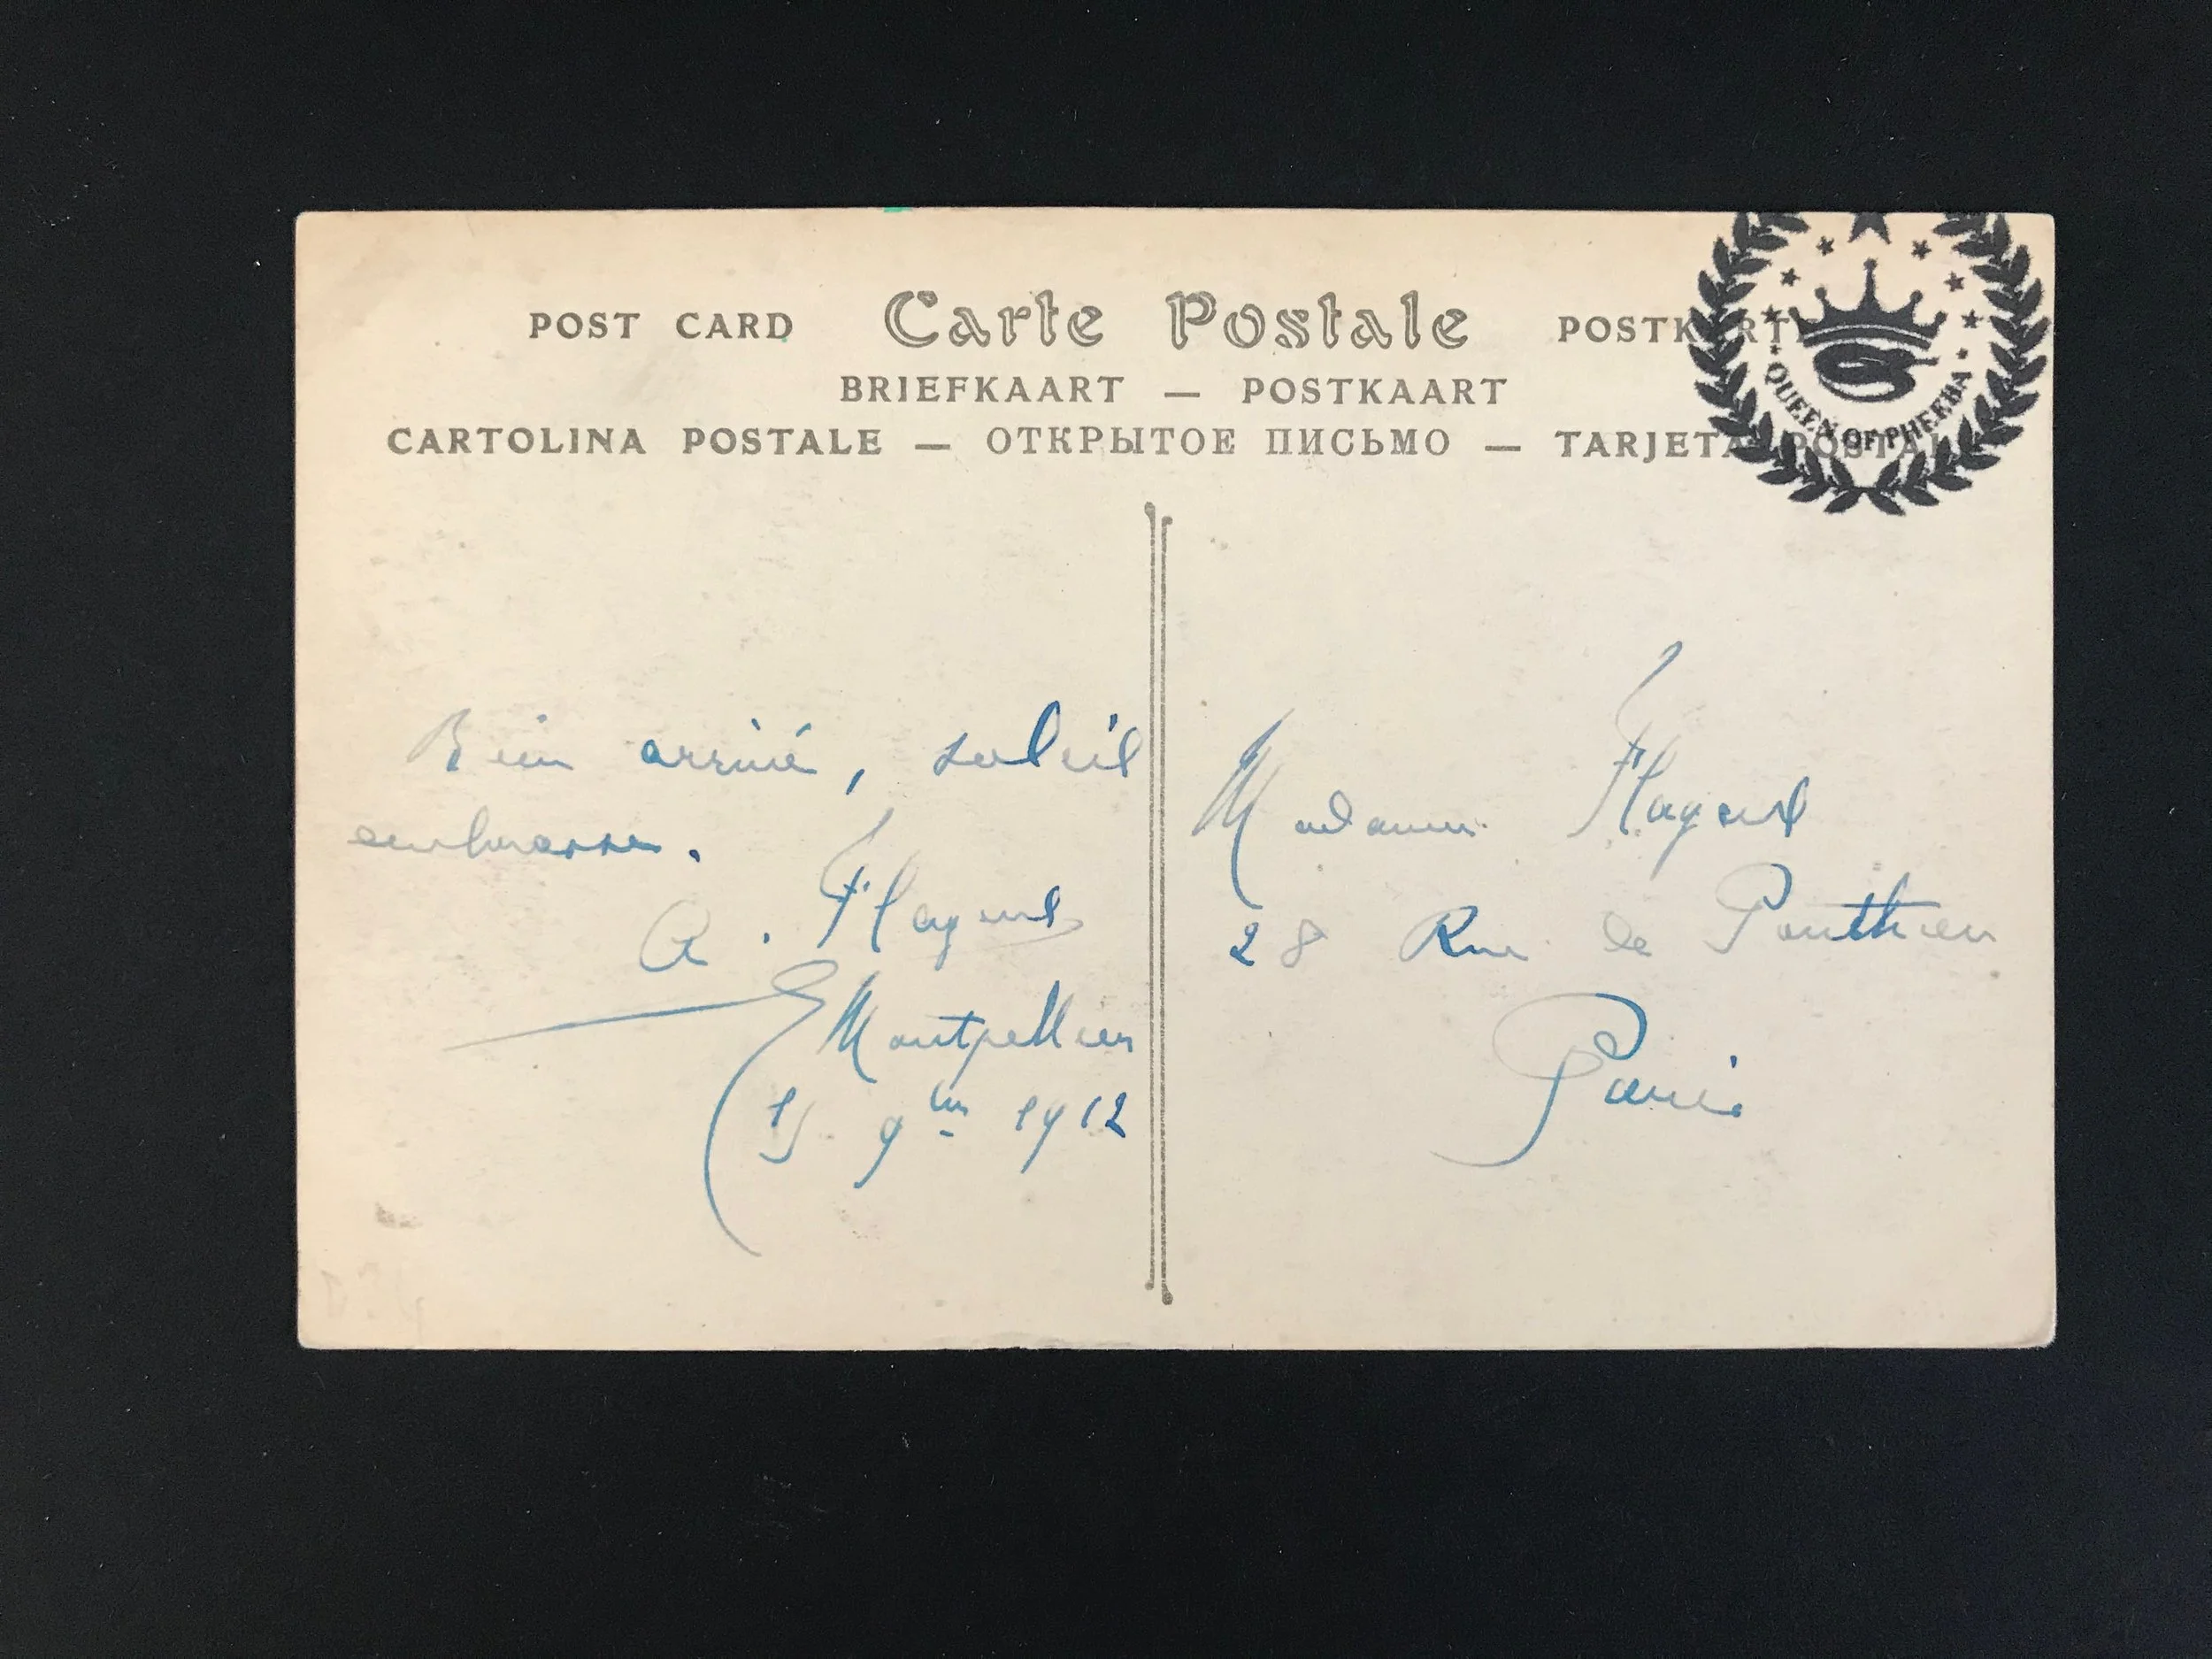 POST CARD Carte Postale POSTKARTE
BRIEFKAART — POSTKAART
CARTOLINA POSTALE — ОТКРЫТОЕ ПИСЬМО — TARJETA POSTAL
QUEEN OF PHEEBA
Bien arrivé, soleil
embrasse.
A. Flageul
Montpellier
15 9bre 1912
Madame Flageul
28 Rue de Ponthieu
Paris